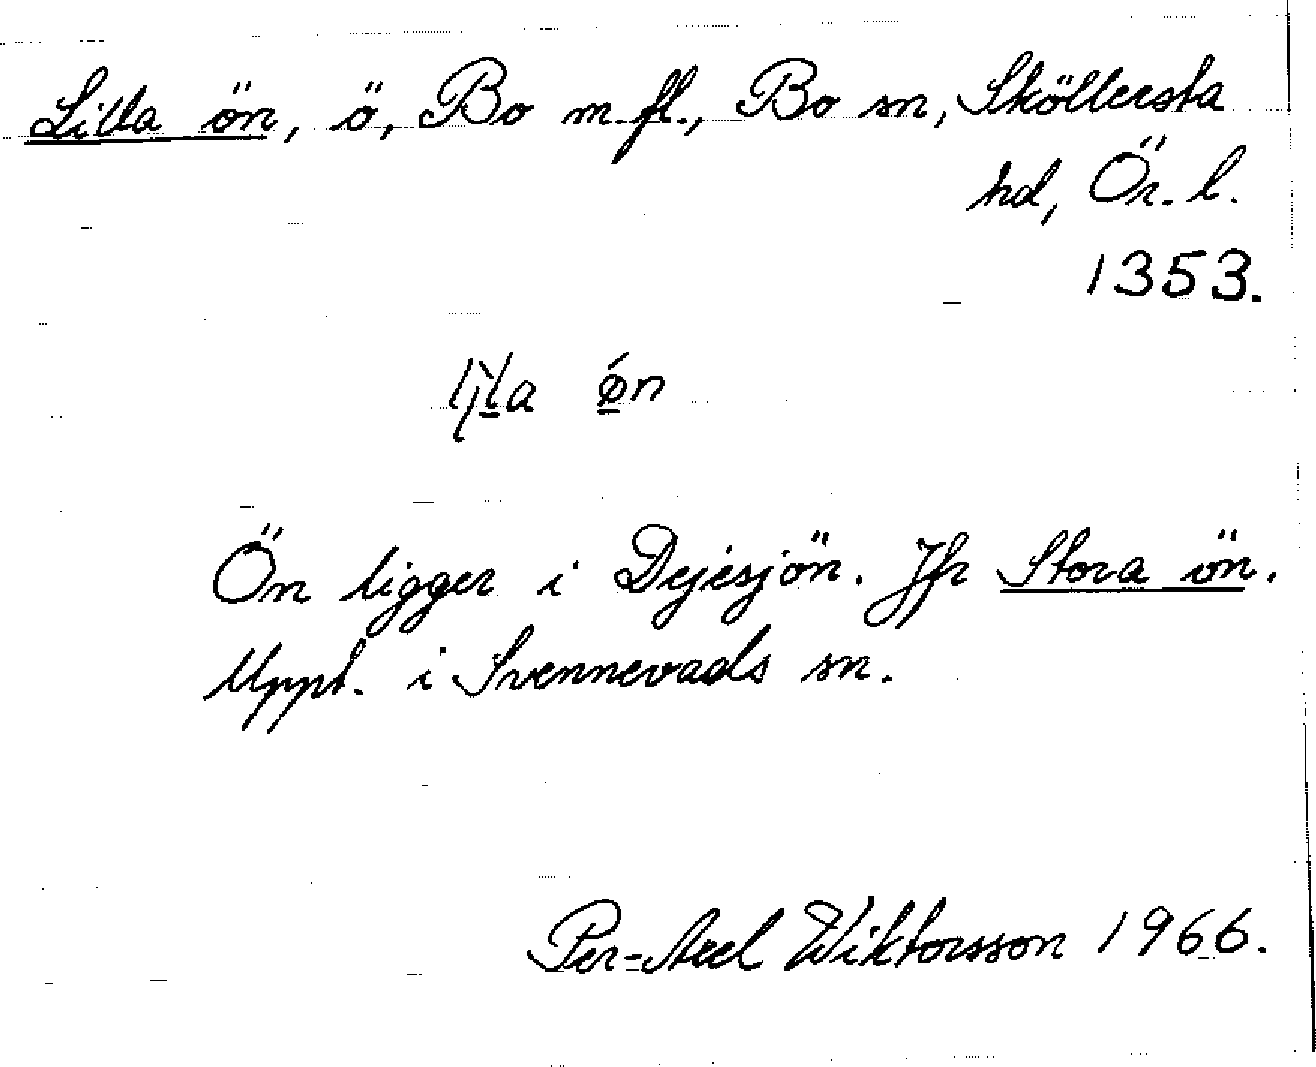 Lilla ön, ö, Bo m. fl., Bo sn, Sköllersta
hd, Ör. l.
1353.
ön
Ön ligger i Dejesjön. Jfr Stora ön.
Uppt. i Svennevads sn.
Per-Axel Wiktorsson 1966.